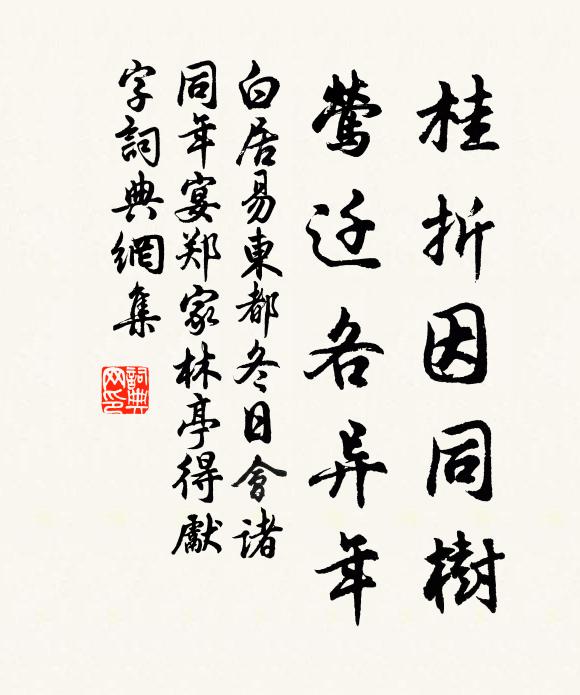 桂折因同樹
鶯迁各异年
白居易東都冬日會諸
同年宴郑家林亭得獻
字詞典網集
詞典
网印